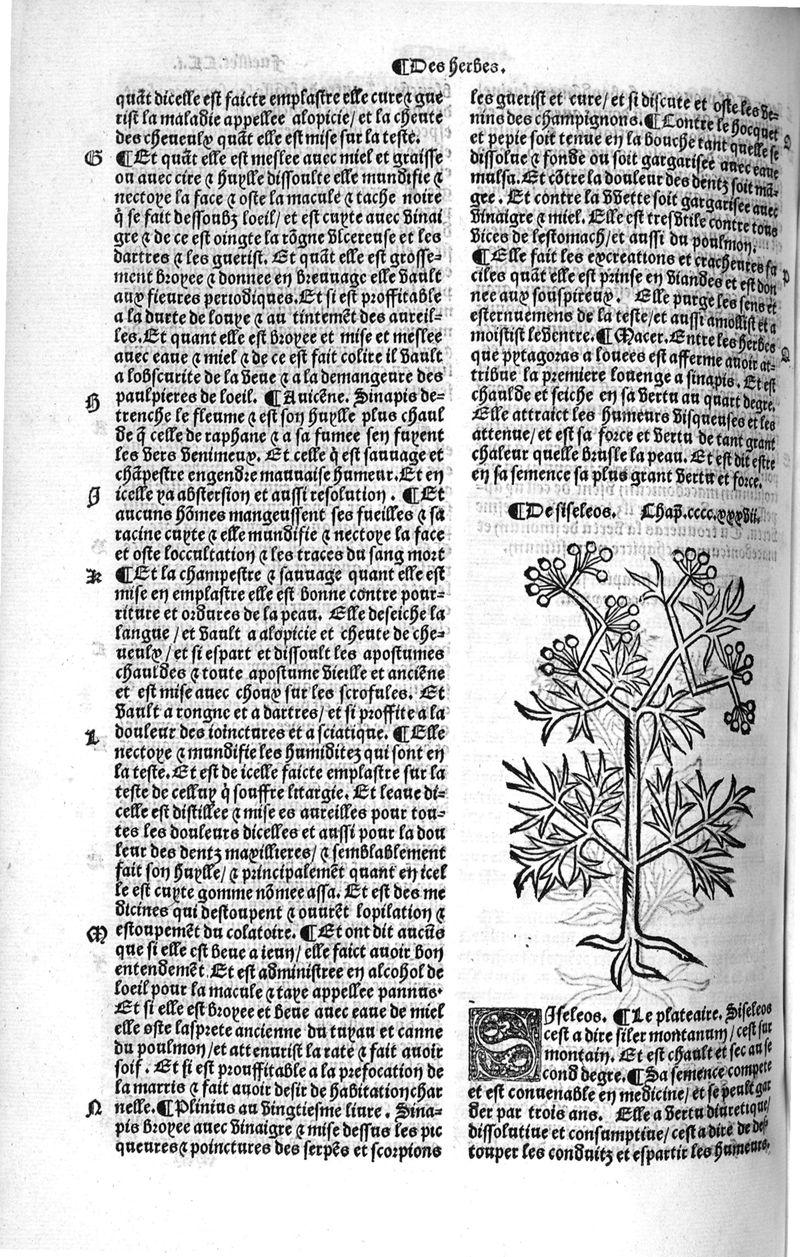 ¶Des herbes.
quãt dicelle est faicte emplastre elle cure ⁊ gue
rist la maladie appellee alopicie/ et la cheute
des cheueulx quãt elle est mise sur la teste.
G ¶Et quãt elle est meslee auec miel et graisse
ou auec cire ⁊ huylle dissoulte elle mundifie ⁊
nectoye la face ⁊ oste la macule ⁊ tache noire
q̃ se fait dessoubz loeil/ et est cuyte auec vinai
gre ⁊ de ce est oingte la rõgne vlcereuse et les
dartres ⁊ les guerist. Et quãt elle est grosse-
ment broyee ⁊ donnee en breuuage elle vault
aux fieures periodiques. Et si est proffitable
a la durte de louye ⁊ au tintemẽt des aureil-
les. Et quant elle est broyee et mise et meslee
auec eaue ⁊ miel ⁊ de ce est fait colire il vault
a lobscurite de la veue ⁊ a la demangeure des
H paulpieres de loeil. ¶Auicẽne. Sinapis de-
trenche le fleume ⁊ est son huylle plus chault
de q̃ celle de raphane ⁊ a sa fumee sen fuyent
les vers venimeux. Et celle q̃ est sauuage et
chãpestre engendre mauuaise humeur. Et en
I icelle ya abstersion et aussi resolution. ¶Et
aucuns hõmes mangeussent ses fueilles ⁊ sa
racine cuyte ⁊ elle mundifie ⁊ nectoye la face
et oste loccultation ⁊ les traces du sang mort
K ¶Et la champestre ⁊ sauuage quant elle est
mise en emplastre elle est bonne contre pour-
riture et ordures de la peau. Elle deseiche la
langue/ et vault a alopicie et cheute de che-
ueulx/ et si espart et dissoult les apostumes
chauldes ⁊ toute apostume vieille et anciẽne
et est mise auec choux sur les scrofules. Et
vault a rongne et a dartres/ et si proffite a la
L douleur des ioinctures et a sciatique. ¶Elle
nectoye ⁊ mundifie les humiditez qui sont en
la teste. Et est de icelle faicte emplastre sur la
teste de celluy q̃ souffre litargie. Et leaue di-
celle est distillee ⁊ mise es aureilles pour tou-
tes les douleurs dicelles et aussi pour la dou
leur des dentz maxillieres/ ⁊ semblablement
fait son huylle/ ⁊ principalemẽt quant en icel
le est cuyte gomme nõmee assa. Et est des me
dicines qui destoupent ⁊ ouurẽt lopilation ⁊
M estoupemẽt du colatoire. ¶Et ont dit aucũs
que si elle est beue a ieun/ elle faict auoir bon
entendemẽt. Et est administree en alcohol de
loeil pour la macule ⁊ taye appellee pannus.
Et si elle est broyee et beue auec eaue de miel
elle oste lasprete ancienne du tuyau et canne
du poulmon/ et attenurist la rate ⁊ fait auoir
soif. Et si est prouffitable a la prefocation de
la marris ⁊ fait auoir desir de habitation char
N nelle. ¶Plinius au vingtiesme liure. Sina-
pis broyee auec vinaigre ⁊ mise dessus les pic
queures ⁊ poinctures des serpẽs et scorpions
les guerist et cure/ et si discute et oste les ve-
nins des champignons. ¶Contre le hocquet O
et pepie soit tenue en la bouche tant quelle se
dissolue ⁊ fonde ou soit gargarisee auec eaue
mulsa. Et cõtre la douleur des dentz soit mã-
gee. Et contre la vuette soit gargarisee auec
vinaigre ⁊ miel. Elle est tresvtile contre tous
vices de lestomach/ et aussi du poulmon.
¶Elle fait les excreations et cracheures fa P
ciles quãt elle est prinse en viandes et est don
nee aux souspireux. Elle purge les sens et
esternuemens de la teste/ et aussi amollist et a
moistist le ventre. ¶Macer. Entre les herbes Q
que pytagoras a louees est afferme auoir at-
tribue la premiere louenge a sinapis. Et est
chaulde et seiche en sa vertu au quart degre.
Elle attraict les humeurs visqueuses et les
attenue/ et est sa force et vertu de tant grant
chaleur quelle brusle la peau. Et est dit estre
en sa semence sa plus grant vertu et force.
¶De siseleos. Chap̃. cccc.xxxvii.
SIseleos. ¶Le plateaire. Siseleos
cest a dire siler montanum/ cest sur
montain. Et est chault et sec au se
cond degre. ¶Sa semence compete
et est conuenable en medicine/ et se peult gar
der par trois ans. Elle a vertu diuretique/
dissolutiue et consumptiue/ cest a dire de des-
touper les conduitz et espartir les humeurs.